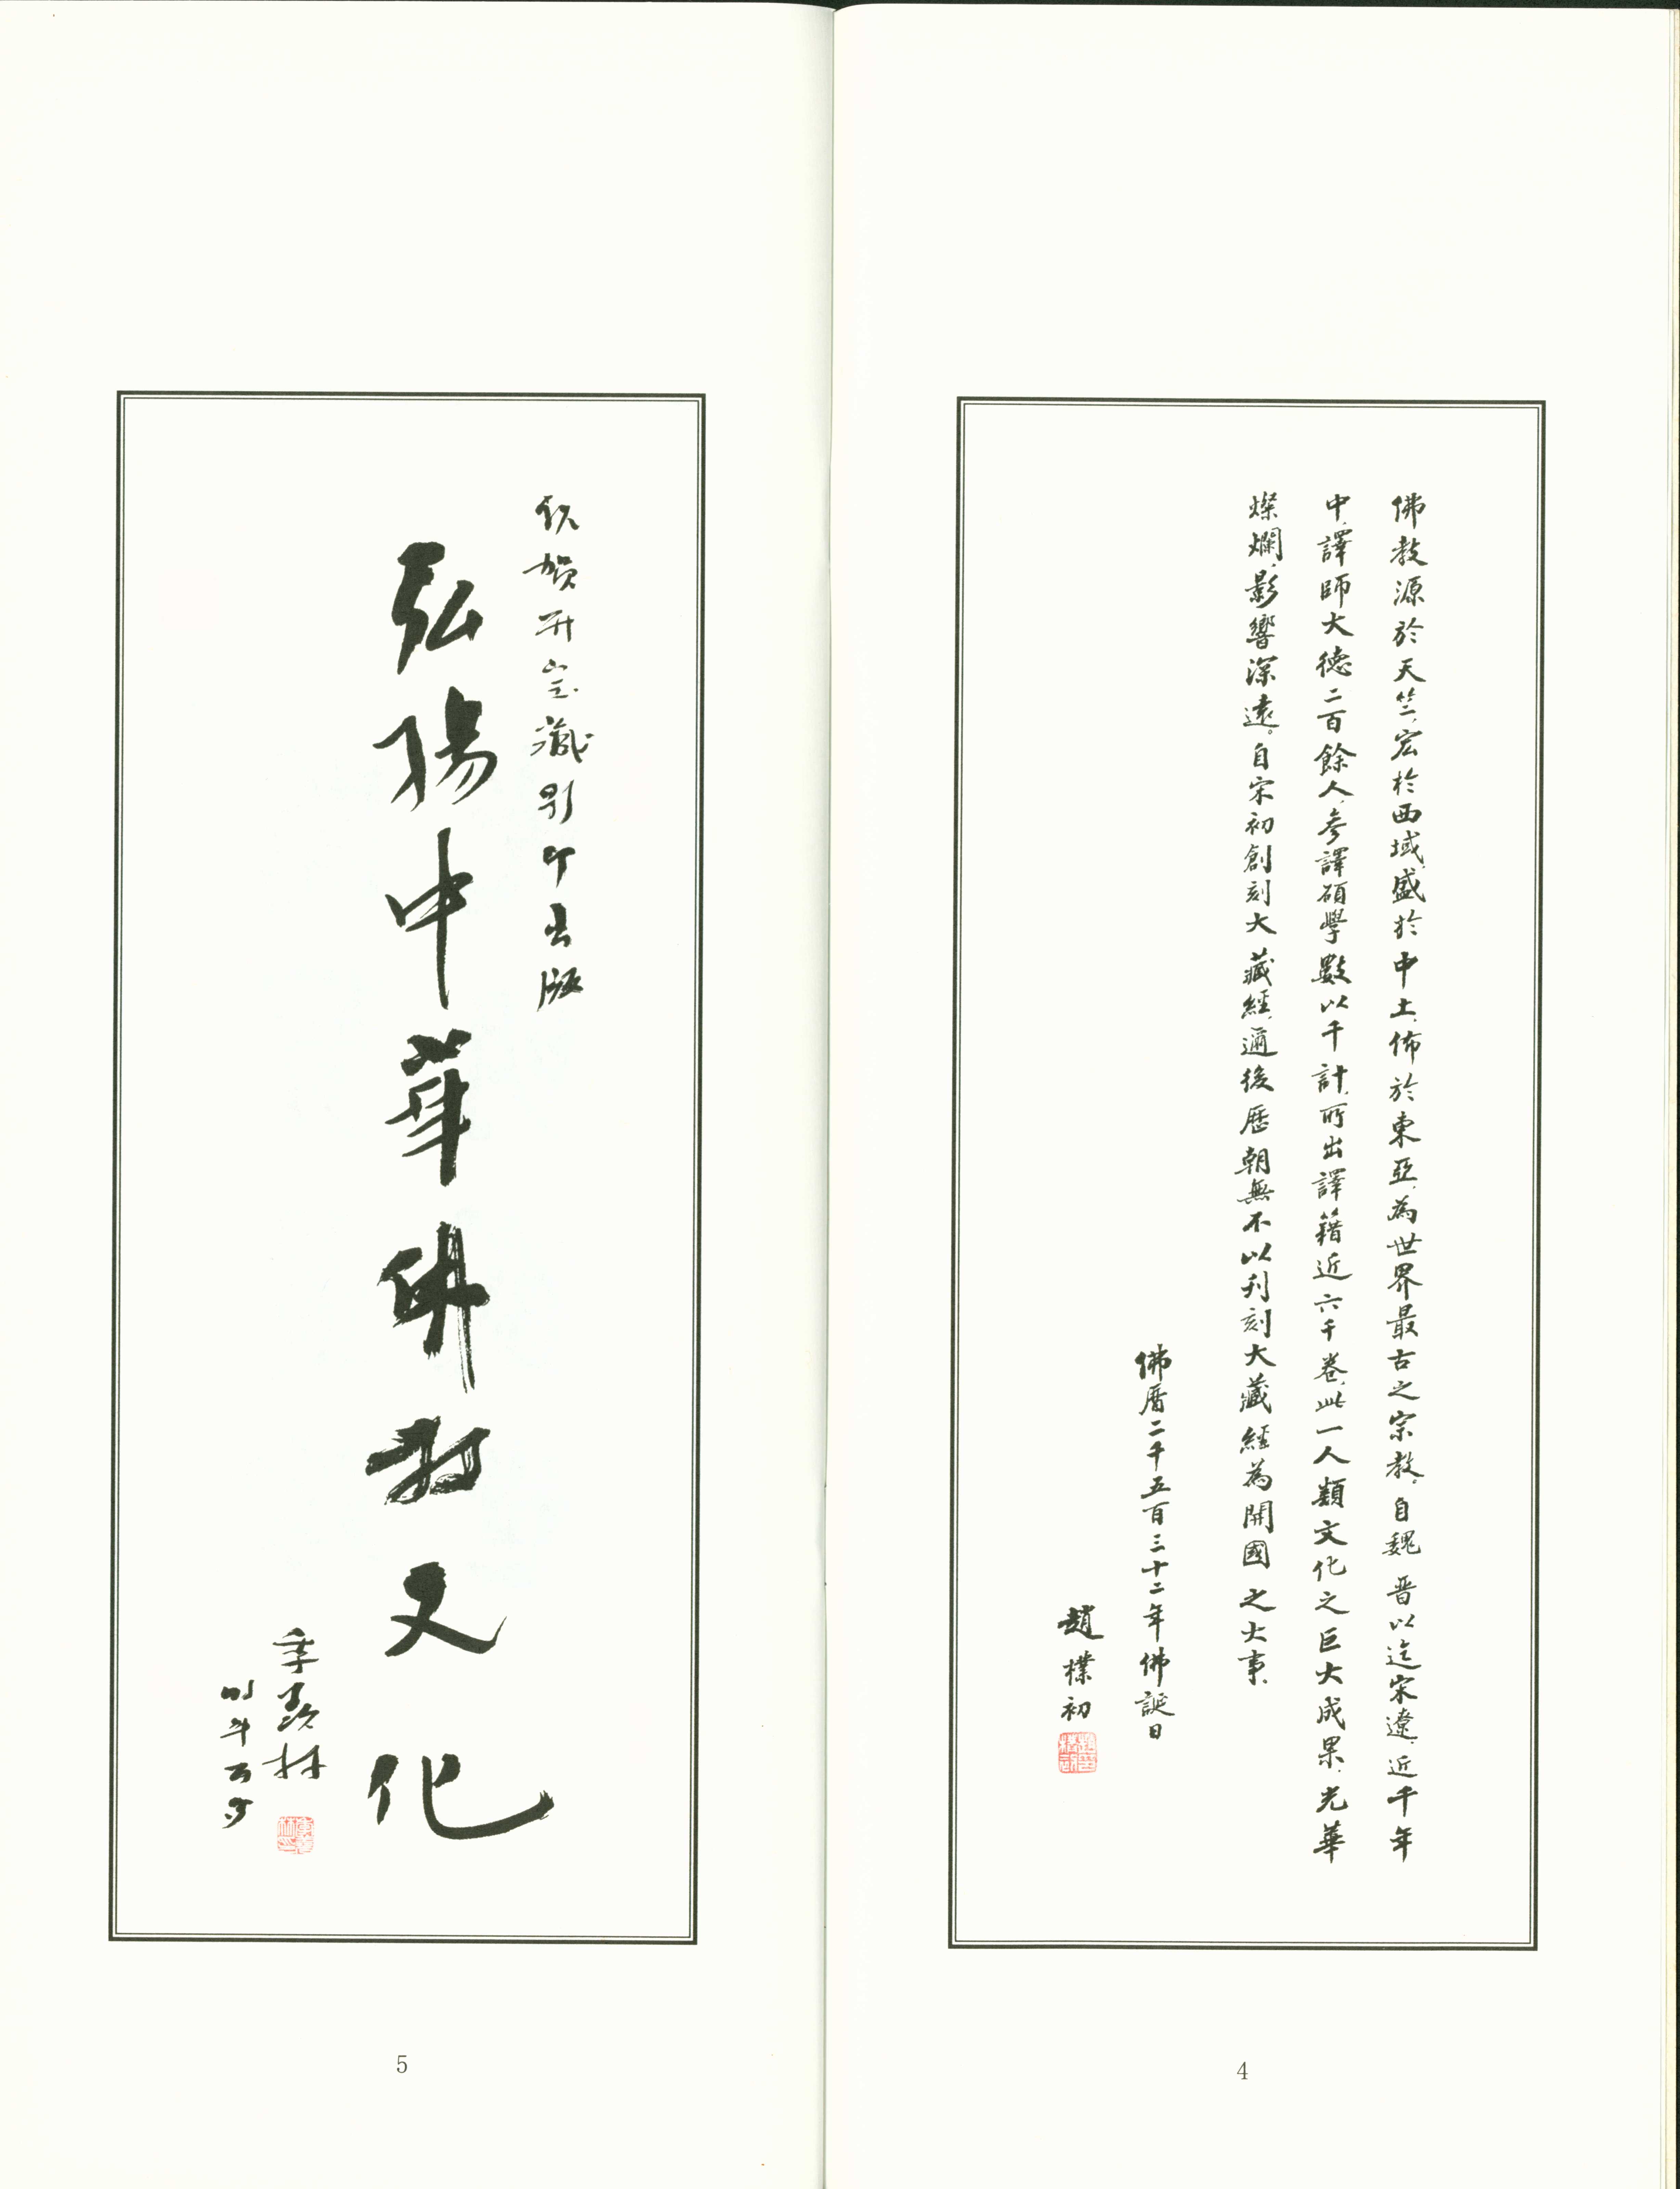 佛教源於天竺，宏於西域，盛於中土，佈於東亞，為世界最古之宗教。自魏晋以迄宋遼，近千年
中，譯師大德二百餘人，參譯碩學數以千計，所出譯籍近六千卷，此一人類文化之巨大成果，光華
燦爛，影響深遠。自宋初創刻大藏經，邇後歷朝無不以刊刻大藏經為開國之大事。
佛曆二千五百三十二年佛誕日
趙樸初
4
欣賀开宝藏影印出版
弘揚中華佛教文化
季羡林
5